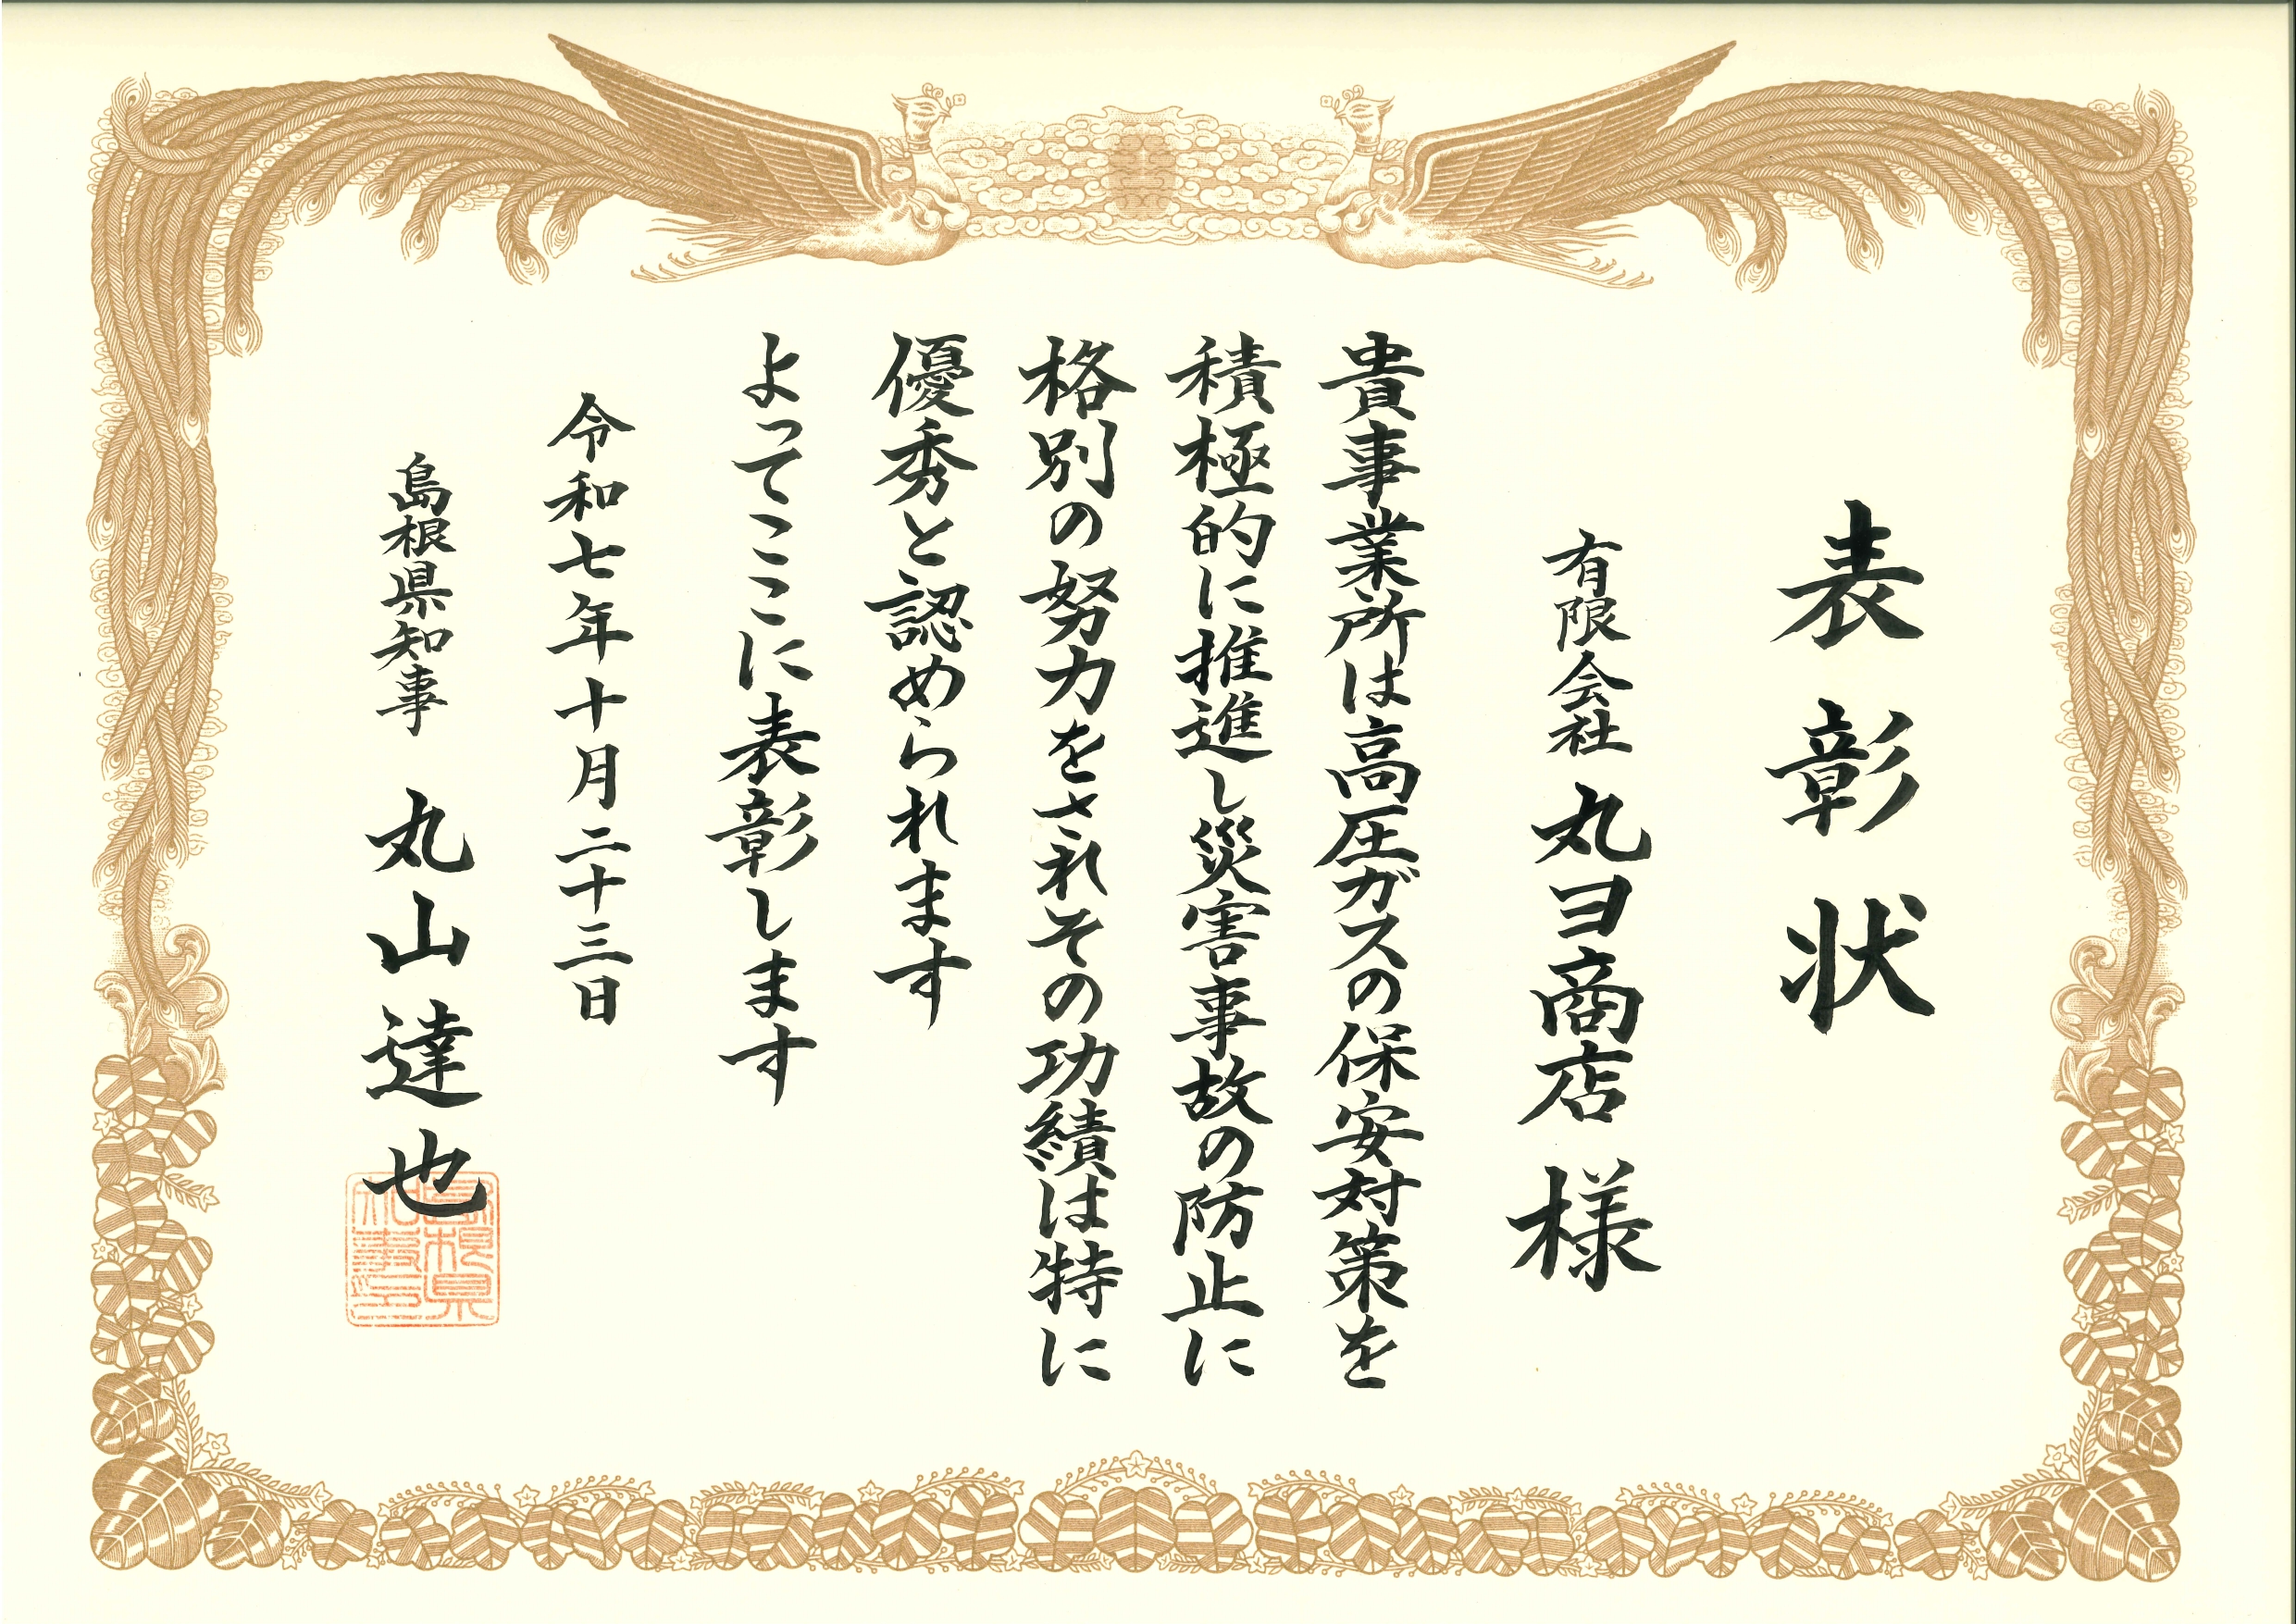 表彰状
有限会社 丸ヨ商店 様
貴事業所は高圧ガスの保安対策を
積極的に推進し災害事故の防止に
格別の努力をされその功績は特に
優秀と認められます
よってここに表彰します
令和七年十月二十三日
島根県知事 丸山達也